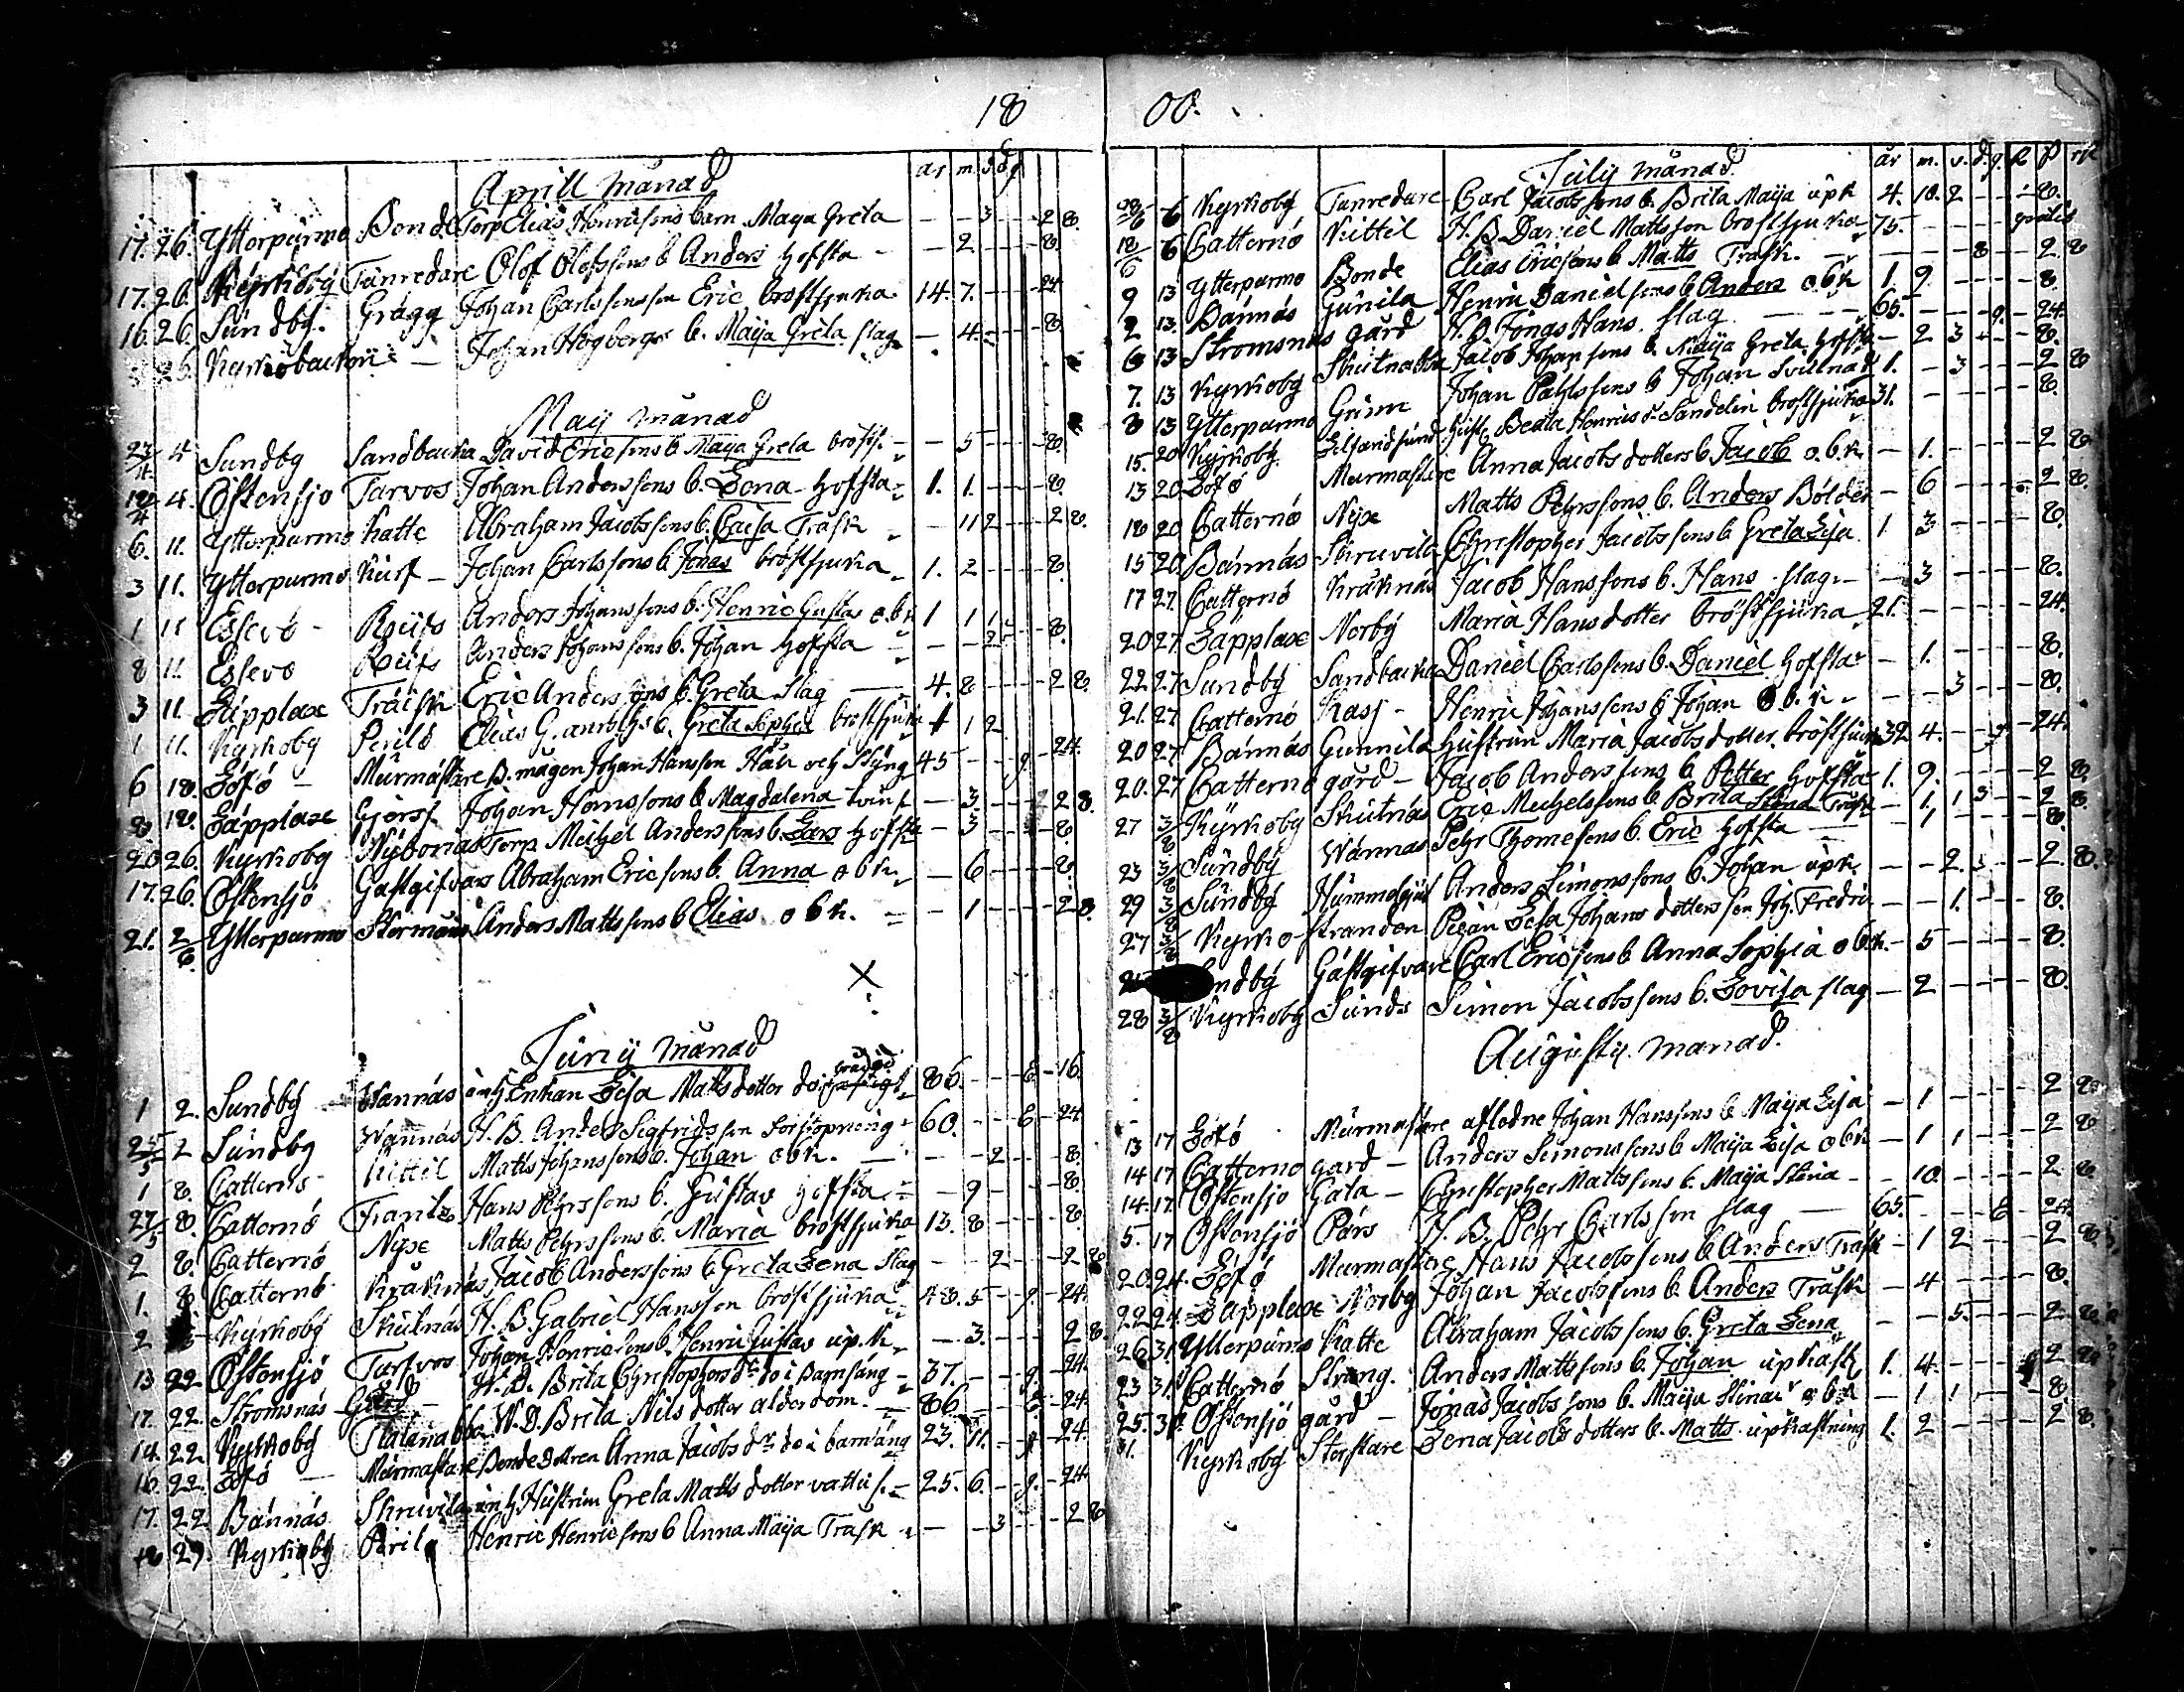 18
Aprill månad
år m
17. 26. Ytterpurmo Bonde Torp Elias Henricsons barn Maya Greta — — 3 — — 2 8.
17. 26. Kyrkoby Tunredare Olof Olofssons b. Anders hofsta — 2 — — — 8.
16. 26. Sundby. Grägg Johan Carlssons son Eric bröstsjuka 14. 7. — — 24
26. Kyrkobackan — Johan Högbergs b. Maija Greta slag — 4. — — 8.
May månad
23/4 4 Sundby Sandbacka David Ericsons b. Maya Greta bröstsj. — 5 — — 8.
4. Östensjö Tarvos Johan Anderssons b. Lena hofsta 1. 1. — — 8.
6. 11. Ytterpurmo Katte Abraham Jacobssons b. Caisa Trask — 11 2 — 2 8.
3 11. Ytterpurmo Kurf — Johan Carlssons b. Jonas bröstsjuka 1. 2 — — 8.
1 11 Essevo — Rüüfs Anders Johanssons b. Henric Gustav o.b.k 1 1 1
8 11. Essevo Rüüfs Anders Johanssons b. Johan hofsta — — 2 — 8.
3 11. Lipplax Träisk Eric Anderssons b. Greta slag — 4. 8 — — 2 8.
1 11. Kyrkoby Perild Elias G. b. Greta Sophia bröstsjuka 1 1 2
6 18. Löfö — Murmästare B. mågen Johan Hansson Håll och Styng 45 — — 9. — 24.
18. Läpplax Gjers Johan Hanssons b. Magdalena — 3. — — 2 8.
20 26. Kyrkoby Torp Michel Anderssons b. Lars hofsta — 3 — — 8.
17. 26. Östensjö Gästgifvars Abraham Ericsons b. Anna o b k. — 6 — — 8.
21. 2/6. Ytterpurmo Stormåns Anders Mattssons b. Elias o b k. — 1 — — 2 8.
X
Junij månad
1 2. Sundby Wannäs Enkan Lisa Matts dotter 86. — — 6 — 16.
25/5 2 Sundby Wannäs H. B. Anders Sigfridsson förstopning 60. — — 6 — 24
1 8. Catternö Kittil Matts Johanssons b. Johan o b k. — — 2 — — 8.
27/5 8. Catternö Frantz Hans Pehrssons b. Gustav hofsta — 9 — — 8.
2 8. Catternö Nyse Matts Pehrssons b. Maria bröstsjuka 13. 8 — — 8.
1. 8 Catternö Kråknäs Jacob Anderssons b. Greta Lena slag — — 2 — — 2 8
2 Kyrkoby Skutnäs H. B. Gabriel Hansson bröstsjuka 48. 5 — 9. — 24.
13 22 Östensjö Tarfvos Johan Henricsons b. Henric Gustav up.k. — 3. — — 2 8.
17. 22. Stromsnäs Gård — H. B. Brita Christophers dr. do i Barnsäng 37. — — 9. — 24.
14. 22. Kyrkoby W. D. Brita Nils dotter alderdom. 86 — — — 24.
16. 22. Löfö — Murmästare Bonde dottren Anna Jacobs dr. do i barnsäng 23. 11. — 9 — 24.
17. 22. Bännäs Skruvila Hustrun Greta Matts dotter vattus. 25. 6. — 9. — 24.
18 29. Kyrkoby Peril Henric Henricsons b. Anna Maija Trask — — 3 — — 2 8
00.
Julij månad
år m. v. d. g. R
6 Kyrkoby Tunredare Carl Jacobssons b. Brita Maija upk 4. 10. 2 — — 8.
6 Catternö Kittil H. B. Daniel Mattsson bröstsjuka 75. — — — gratis
6 Ytterpurmo Bonde Elias Ericsons b. Matts Trask. — — — 8 — 2 8
9 13 Bännäs Gunila Henric Danielssons b. Anders o b k 1. 9. — — 8.
2 13. Stromsnäs gård H. B. Jöngs Hans. slag — — 65. — — 9. — 24.
6 13 Kyrkoby Jacob Johanssons b. Maija Greta hofsta — 2 3 — — 8.
7. 13 Ytterpurmo Grinn Johan Pahlssons b. Johan 1. — 3 — — 2 8
8 13 Kyrkoby. Hust. Beata Henrics dr. Sandelin bröstsjuka 31. — — — 8.
15. 20 Löfö Murmästare Anna Jacobs dotters b. Jacob o.b.k. — 1. — — 2 8
13 20 Catternö Nyse Matts Pehrssons b. Anders Bölder — 6 — — 2 8.
18 20 Bännäs Skruvila Christopher Jacobssons b. Greta Lisa 1 3 — — 8.
15 20 Catternö Kråknäs Jacob Hanssons b. Hans. slag. — — 3 — — 8.
17 27. Läpplax Norby Maria Hansdotter bröstsjuka 21. — — — 24.
20 27. Sundby Sandbacka Daniel Carlssons b. Daniel hofsta — 1. — — 8.
22 27 Catternö Kasj — Henric Johanssons b. Johan o. b. k. — — 3 — — 8.
21. 27 Bännäs Gunnila Hustrun Maria Jacobsdotter. bröstsjuka 32 4. — 9. — 24.
20 27 Catternö gård — Jacob Anderssons b. Petter hofsta 1. 9. — — 2 8
20. 27 Kyrkoby Skutnäs Eric Michelssons b. Brita Stina Trask — 1. 1 3 — 2 8.
27 3/8 Sundby Wännäs Pehr Thomesons b. Eric hofsta — — 1 — — 8.
23 3/8 Sundby Anders Simonssons b. Johan upk. — — 2. 3 — 2 8.
29 3/8 Kyrkostranden Pigan Lisa Johans dotters son Joh. Fredric — — 1. — — 8.
27 3/8 Sundby Gästgifvare Carl Ericsons b. Anna Sophia o b.k. — 5 — — 8.
28 3/8 Kyrkoby Sunds Simon Jacobssons b. Lovisa slag — 2 — — 8.
Augusti månad.
13 17 Löfö Murmästare aflidne Johan Hanssons b. Maija Lisa — 1 — — 2 8
14 17 Catterno gard — Anders Simonssons b. Maija Lisa o b k — 1 1 — — 2 8
14. 17. Östensjö Gata — Christopher Mattssons b. Maija Stina — — 10. — — 2 8
5. 17 Östensjö Pärs H. B. Pehr Carlsson slag — 65. — — 6 — 24.
20. 24. Löfö Murmästare Hans Jacobssons b. Anders Trask — 1 2 — — 2 8
22 24. Läpplax Norby Johan Jacobssons b. Anders Trask — 4 — — 8.
26 31. Ytterpurmo Katte Abraham Jacobssons b. Greta Lena — — 5. — — 2 8
23 31. Catternö Streng. Anders Mattssons b. Johan upkast 1. 4. — — 2
25. 31. Östensjö gård — Jonas Jacobssons b. Maija Stina o b k — 1 1 — — 8.
31. Kyrkoby Storstare Lena Jacobs dotters b. Matts. upkastning 1. 2 — — 2 8.